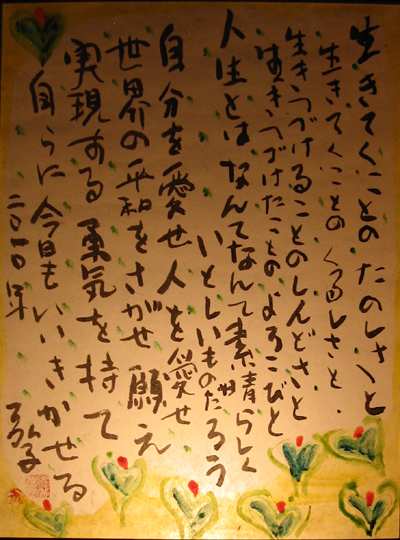 生きてくことのたのしさと
生きてくことのくるしさと
生きつづけることのしんどさと
生きつづけたことのよろこびと
人生とはなんてなんて素晴らしく
いとしいものだろう
自分を愛せ人を愛せ
世界の平和をさがせ願え
実現する勇気を持て
自らに今日もいいきかせる
二〇一〇年